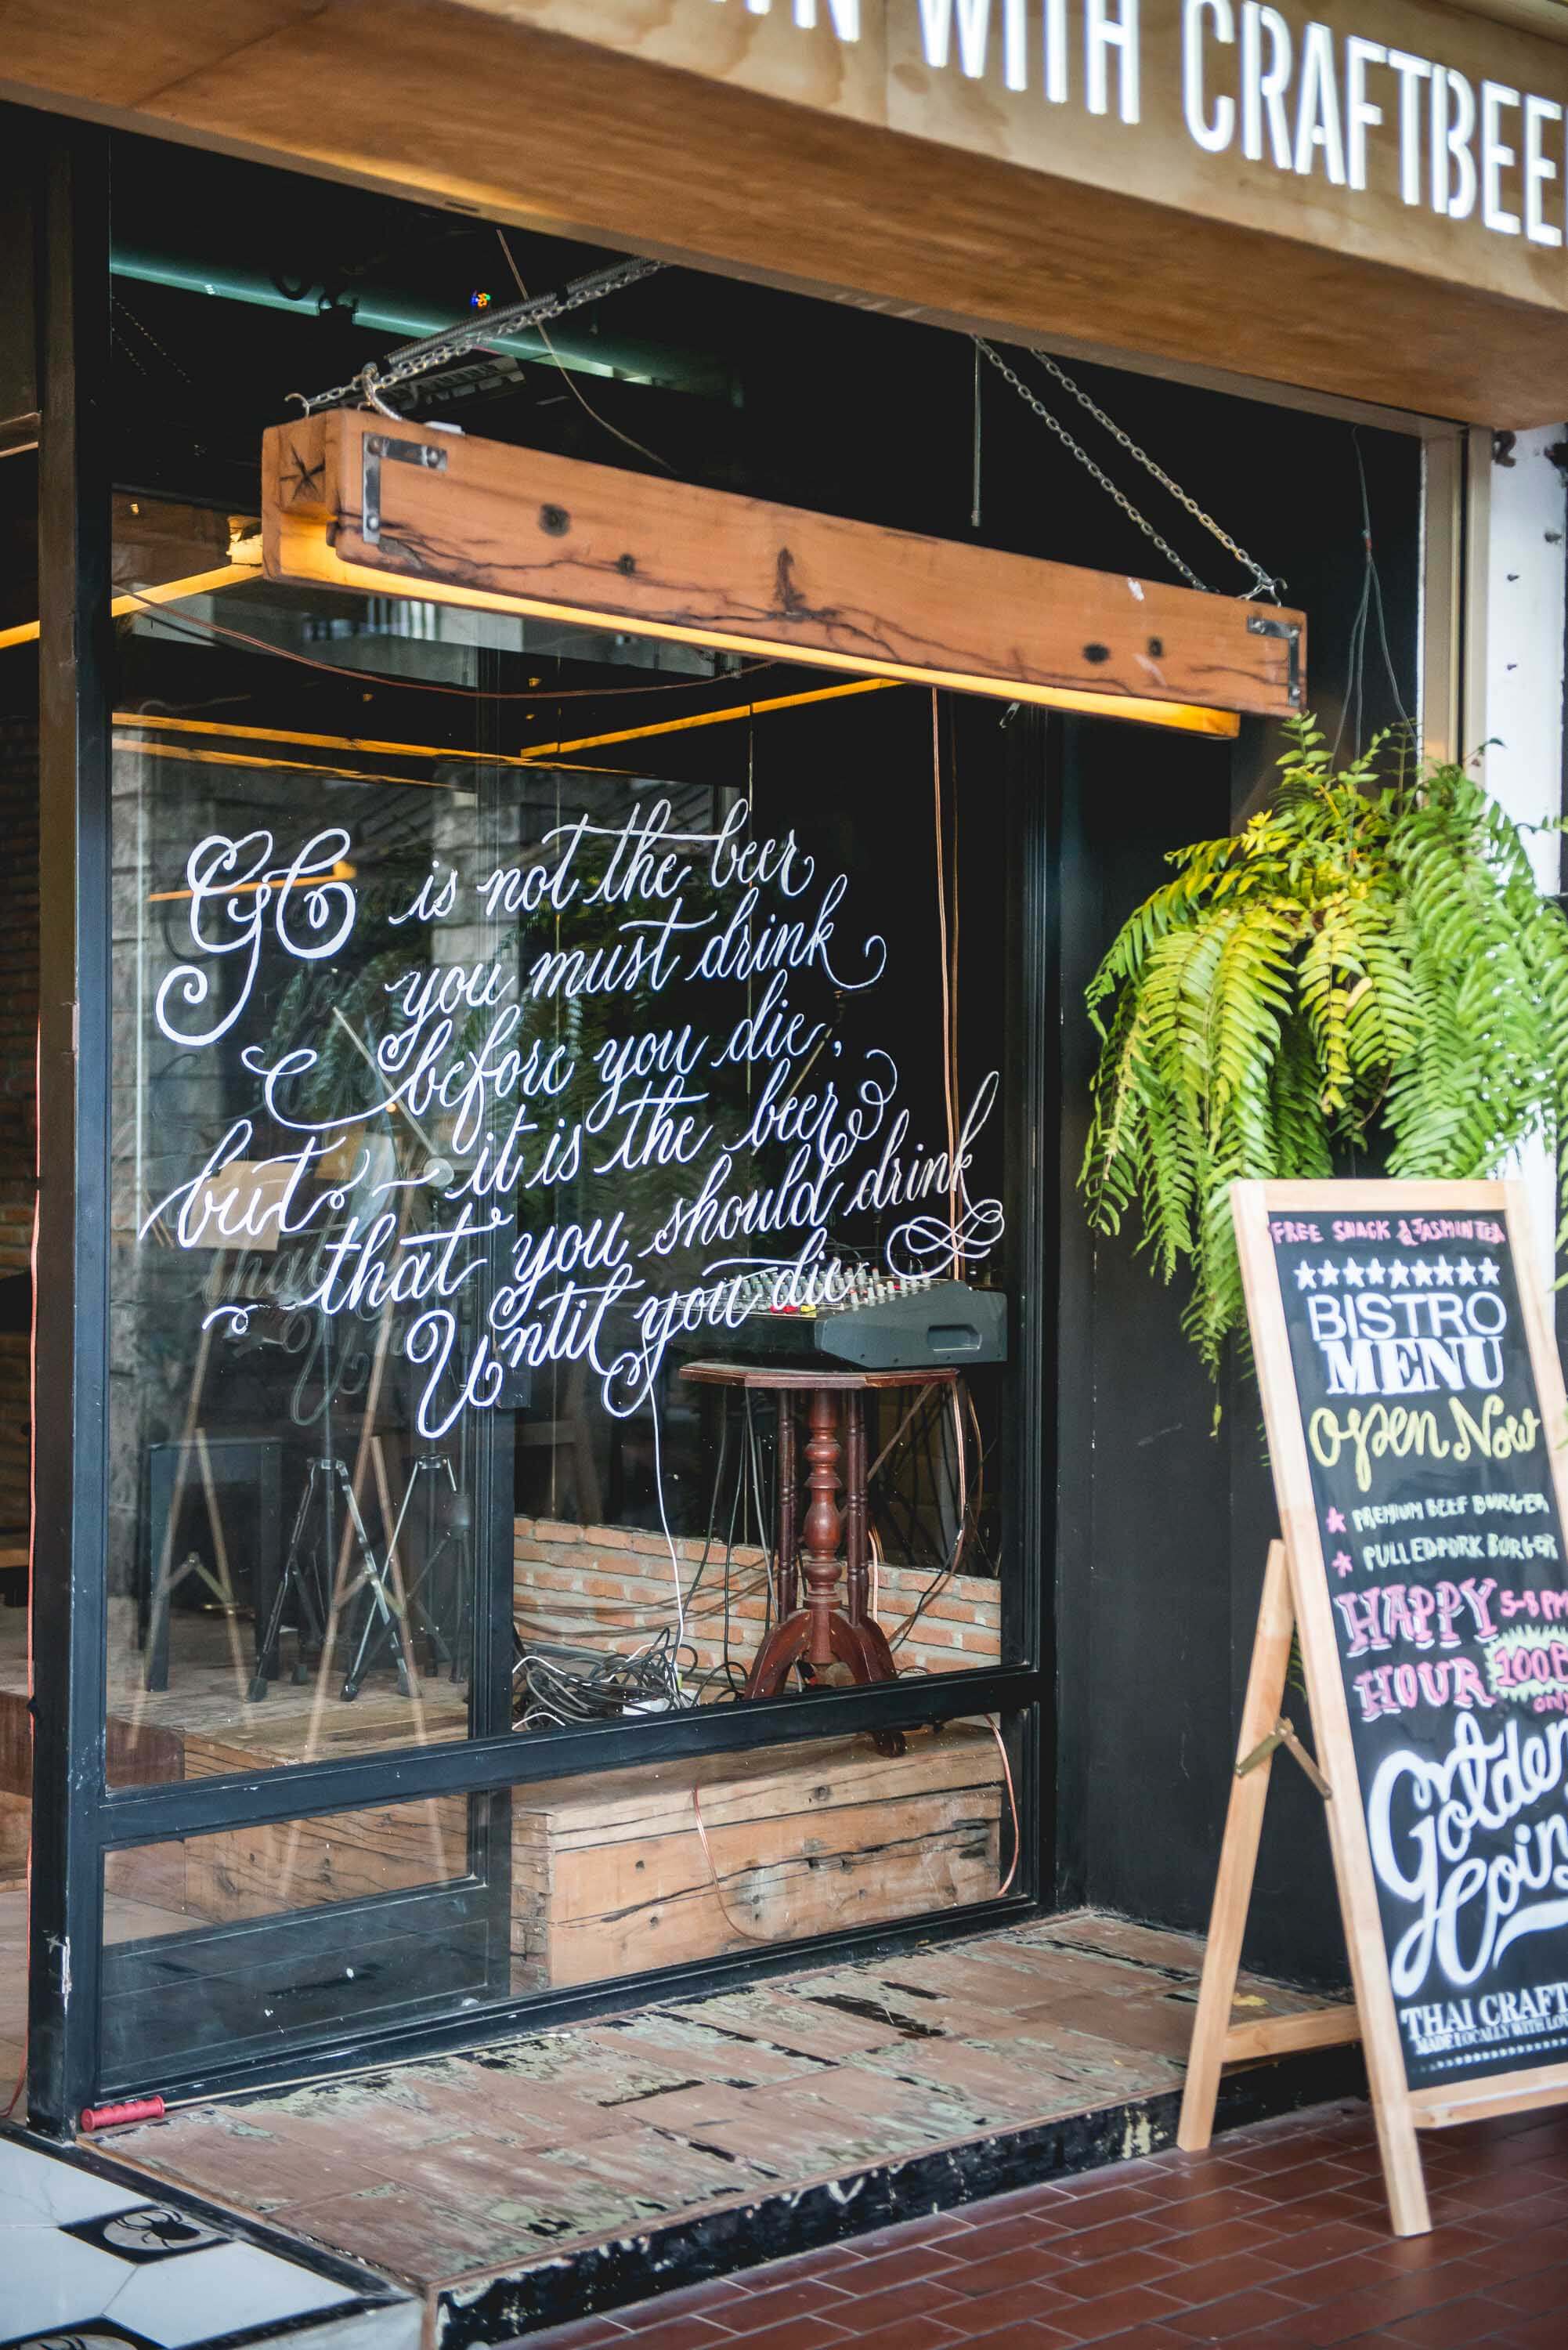 WITH CRAFTBEE
GC is not the beer
you must drink
before you die,
but it is the beer
that you should drink
Until you die
FREE SNACK & JASMIN TEA
BISTRO
MENU
Open Now
PREMIUM BEEF BURGER
PULLEDPORK BURGER
HAPPY
HOUR 100
Golden
Coin
THAI CRAFT
MADE LOCALLY WITH